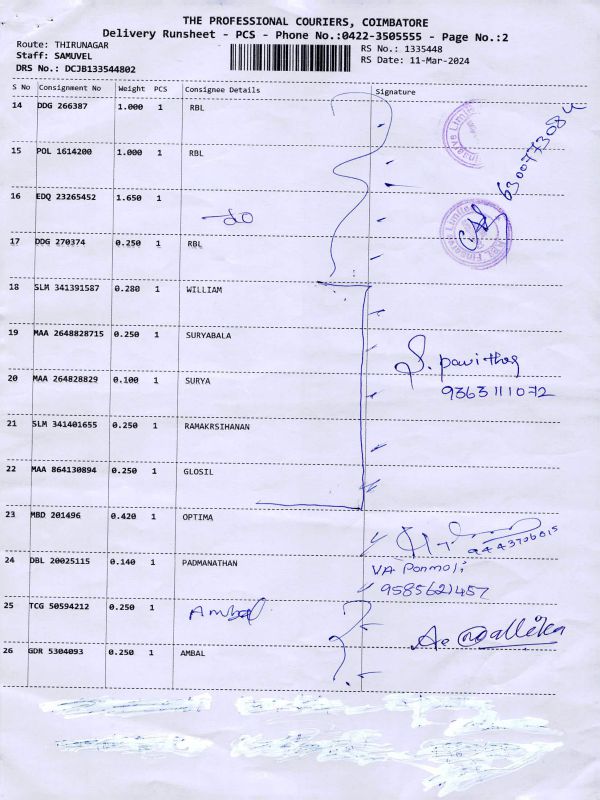 THE PROFESSIONAL COURIERS, COIMBATORE
Delivery Runsheet - PCS - Phone No.:0422-3505555 - Page No.:2
Route: THIRUNAGAR
RS No.: 1335448
Staff: SAMUVEL
RS Date: 11-Mar-2024
DRS No.: DCJB133544802
S No Consignment No Weight PCS Consignee Details Signature
14 DDG 266387 1.000 1 RBL
15 POL 1614200 1.000 1 RBL
16 EDQ 23265452 1.650 1 do
17 DDG 270374 0.250 1 RBL
18 SLM 341391587 0.280 1 WILLIAM
19 MAA 2648828715 0.250 1 SURYABALA
S. pavithra
20 MAA 264828829 0.100 1 SURYA
9363111072
21 SLM 341401655 0.250 1 RAMAKRSIHANAN
22 MAA 864130894 0.250 1 GLOSIL
23 MBD 201496 0.420 1 OPTIMA
9443706015
24 DBL 20025115 0.140 1 PADMANATHAN
VA Ponmoli
9585621457
25 TCG 50594212 0.250 1 Ambal
26 GDR 5304093 0.250 1 AMBAL